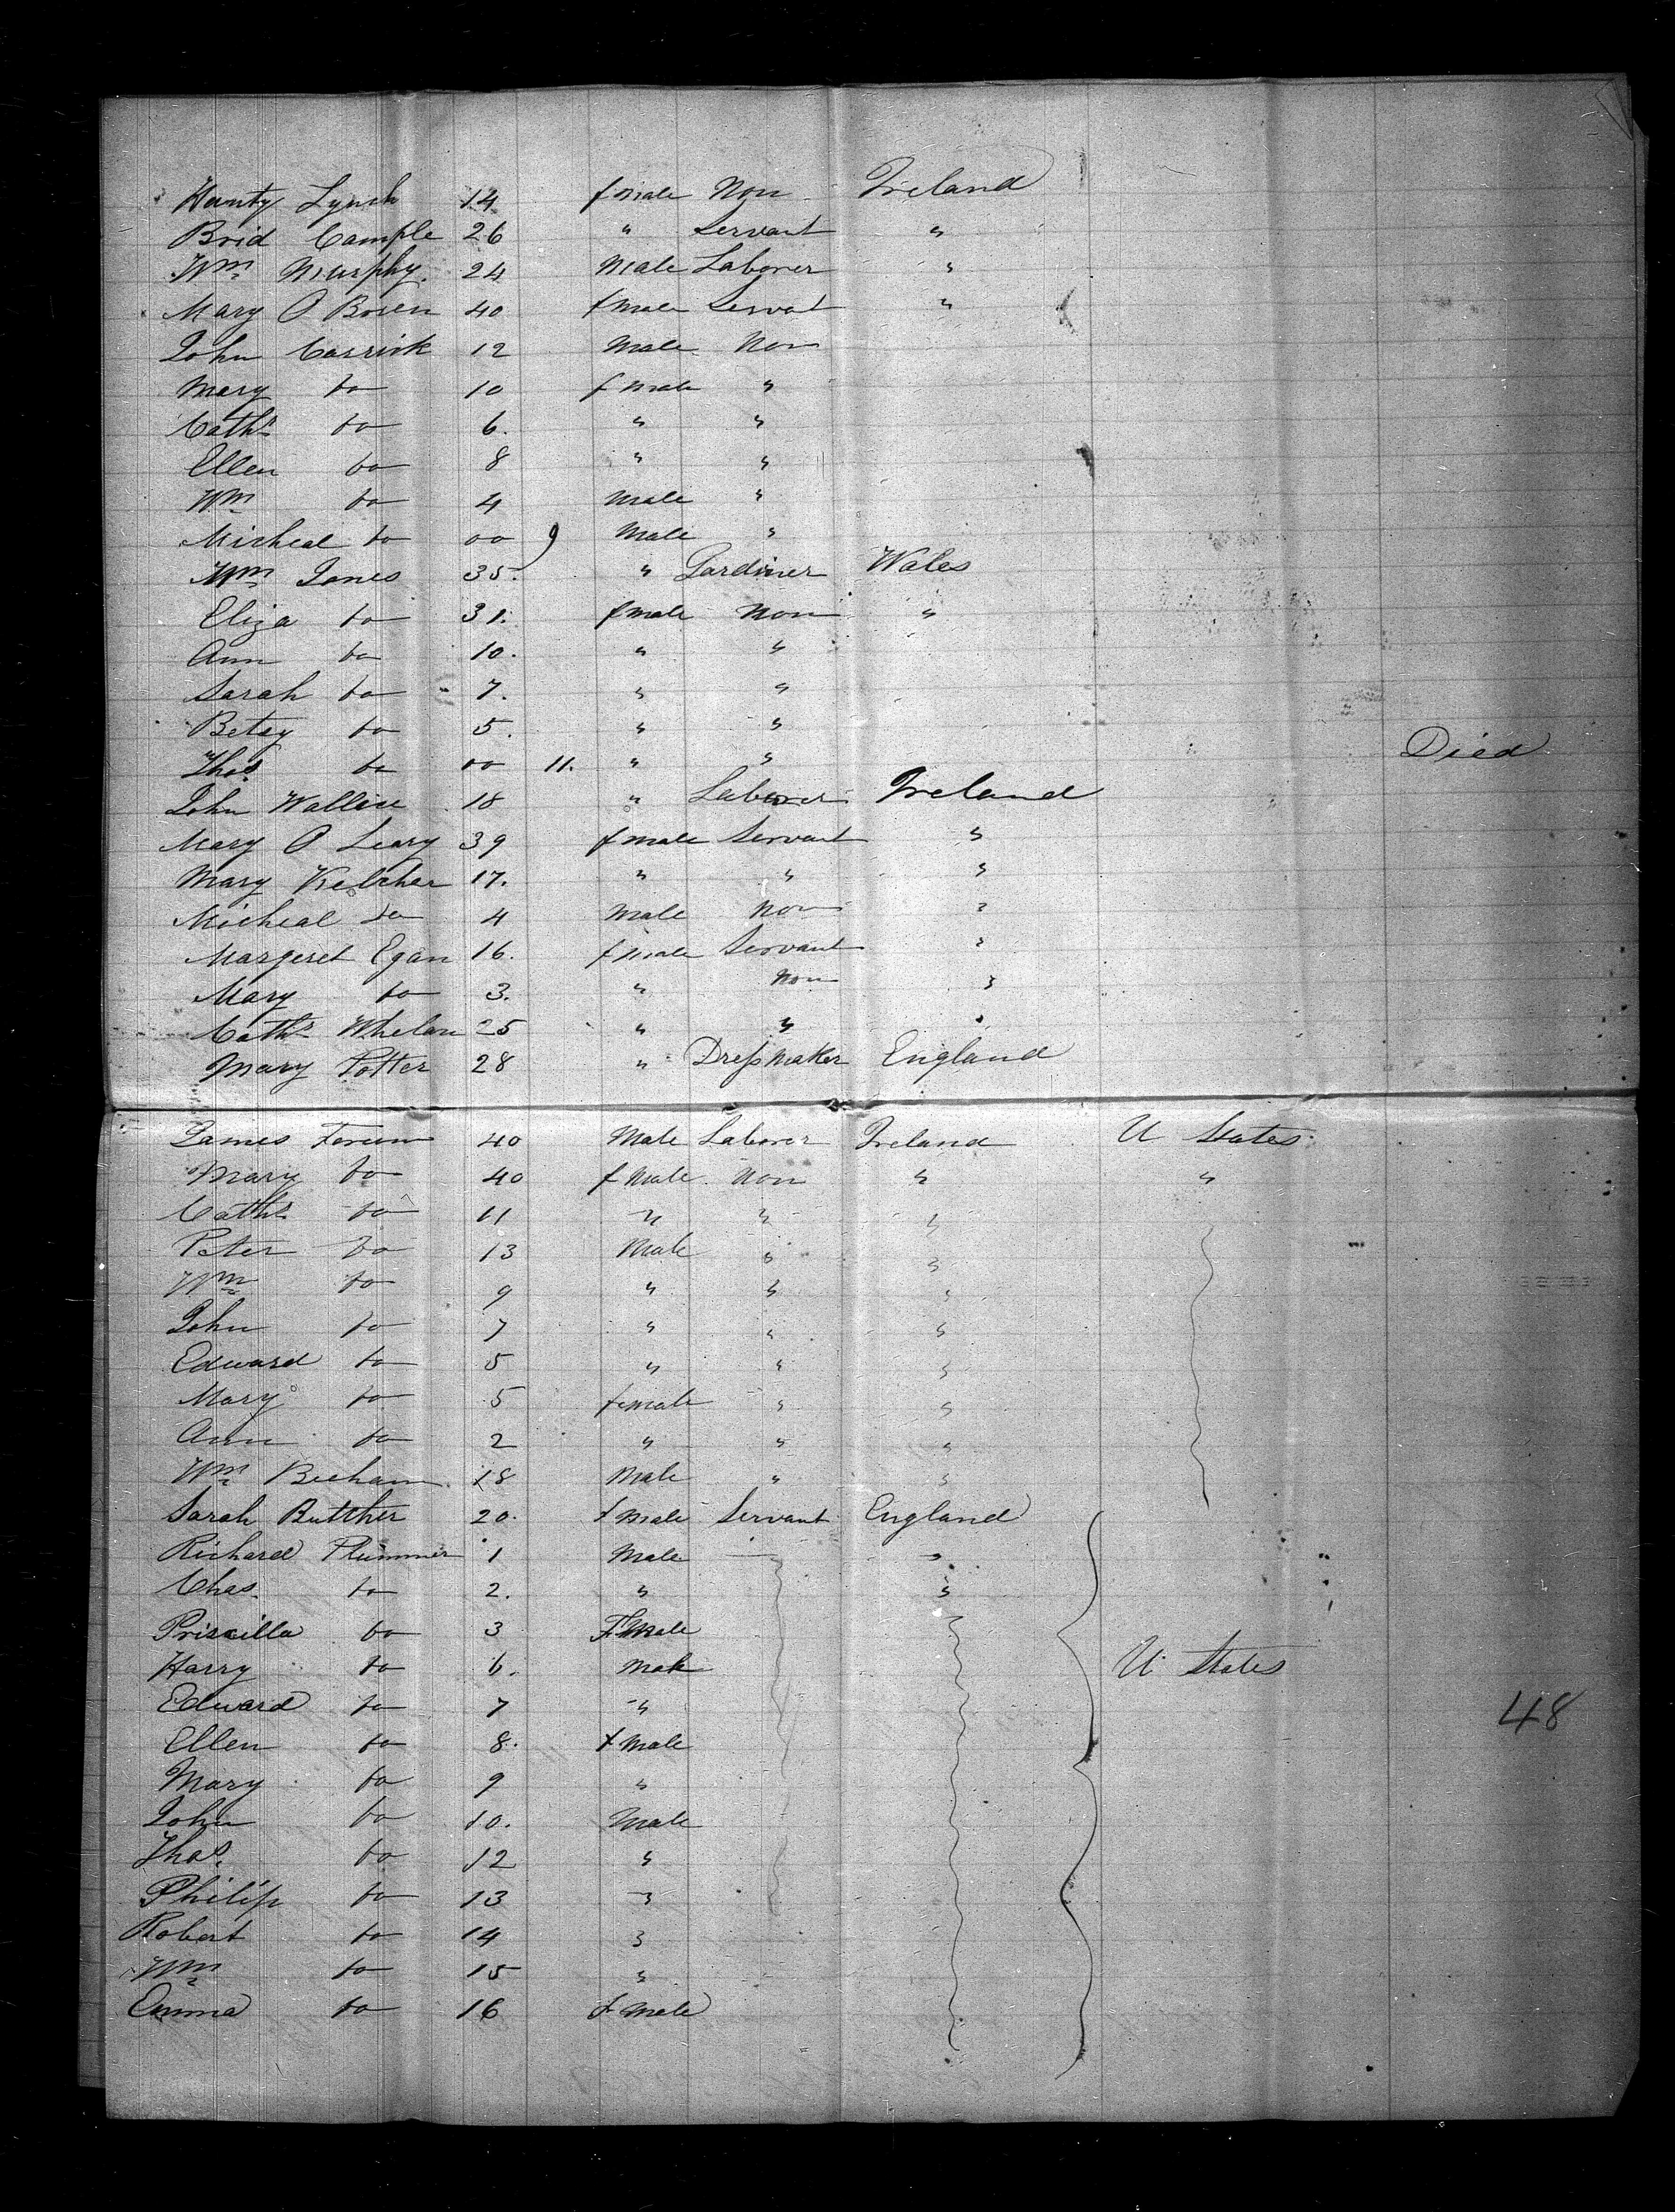 Hanty Lynch 14 fmale Non Ireland
Brid Cample 26 " Servant "
Wm Murphy. 24 Male Laborer "
Mary O Brien 40 fmale Servat "
John Carrick 12 Male Non
Mary do 10 fmale "
Cath do 6. " "
Ellen do 8 " "
Wm do 4 Male "
Micheal do 00 9 Male "
Wm Jones 35. " Gardiner Wales
Eliza do 31. fmale Non "
Ann do 10. " "
Sarah do 7. " "
Betsy do 5. " "
Thos do 00 11. " " Died
John Wallice 18 " Laborer Ireland
Mary O Leary 39 fmale Servant "
Mary Kelcher 17. " " "
Micheal do 4 Male Non "
Margeret Egan 16. fmale Servant "
Mary do 3. " Non "
Cath Whelan 25 " " "
Mary Potter 28 " Dressmaker England
James 40 Male Laborer Ireland U States
Mary do 40 fmale Non " "
Cath do 11 " " "
Peter do 13 Male " "
Wm do 9 " " "
John do 7 " " "
Edward do 5 " " "
Mary do 5 female " "
Ann do 2 " " "
Wm 18 Male " "
Sarah Butcher 20. fmale Servant England
Richard Plummer 1 Male "
Chas. do 2. " "
Priscilla do 3 Fmale
Harry do 6. Male U States
Edward do 7 "
48
Ellen do 8. fmale
Mary do 9 "
John do 10. Male
Thos. do 12 "
Philip do 13 "
Robert do 14 "
Wm do 15 "
Emma do 16 fmale